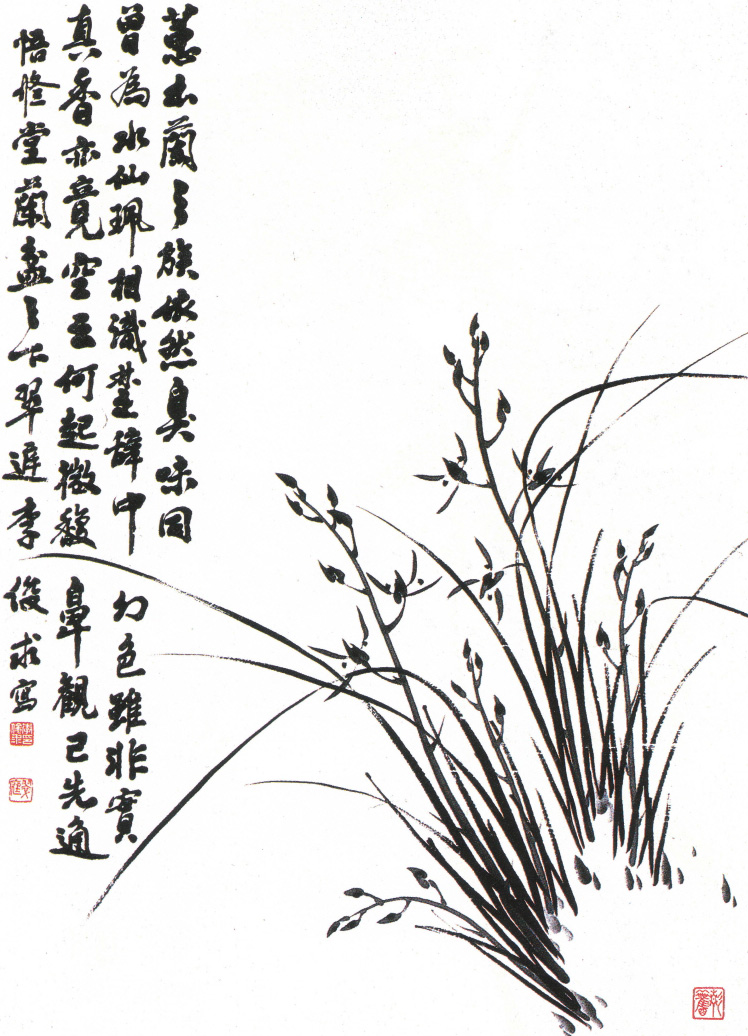 蕙本蘭之族依然臭味同
曾為水仙珮相識楚辭中幻色雖非實
真香亦竟空云何起微馥鼻觀已先通
悟修堂蘭盦之下翠李俊求寫